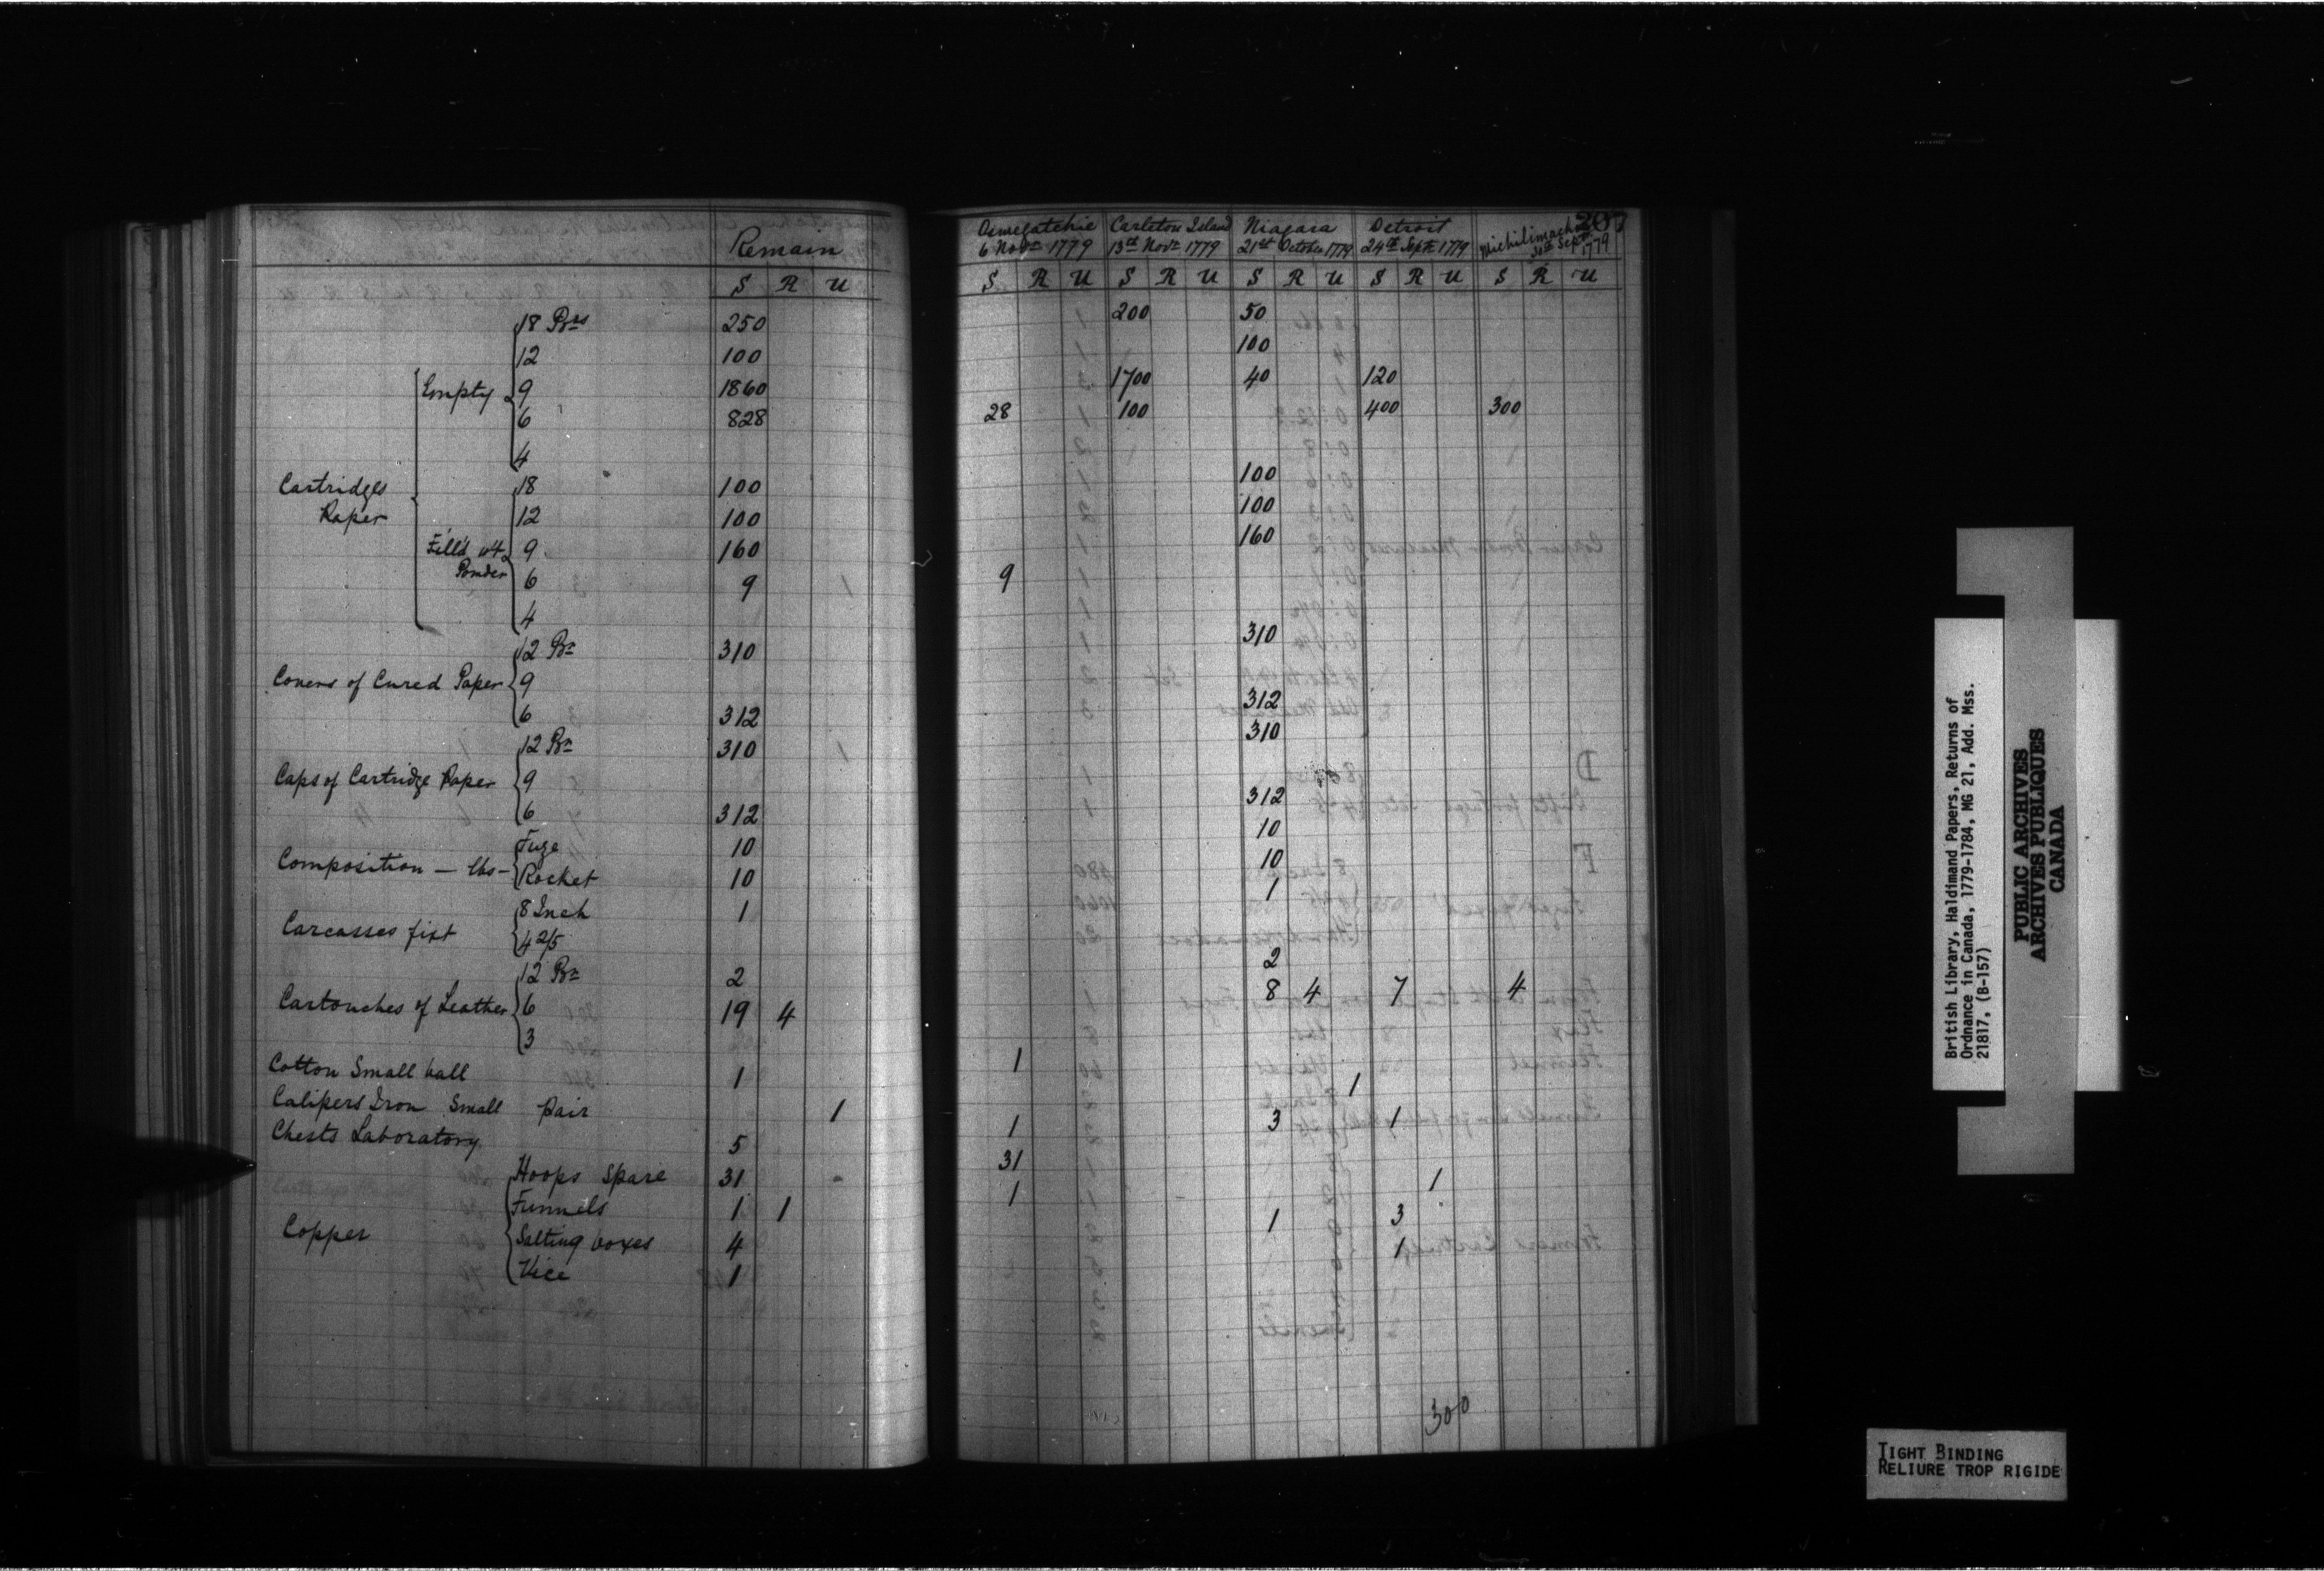 Remain
S R U
Cartridges Paper
Empty
18 Prs 250
12 100
9 1860
6 828
4
Fill'd wt Powder
18 100
12 100
9 160
6 9
4
Covers of Cured Paper
12 Pr 310
9
6 312
Caps of Cartridge Paper
12 Pr 310
9
6 312
Composition — lbs —
Fuze 10
Rocket 10
Carcasses fixt
8 Inch 1
4 2/5
Cartouches of Leather
12 Pr 2
6 19 4
3
Cotton Small ball 1
Calipers Iron Small pair 1
Chests Laboratory 5
Copper
Hoops Spare 31
Funnels 1 1
Salting boxes 4
Vice 1
207
Oswegatchie Carleton Island Niagara Detroit Michilimach
6 Novr 1779 13th Novr 1779 21st October 1779 24th Septr 1779 30th Septr 1779
S R U S R U S R U S R U S R U
200 50
100
1700 40 120
28 100 400 300
100
100
160
9
310
312
310
312
10
10
1
2
8 4 7 4
1
1
1 3 1
31
1 1
1 3
1
300
British Library, Haldimand Papers, Returns of
Ordnance in Canada, 1779-1784, MG 21, Add. Mss.
21817, (B-157)
PUBLIC ARCHIVES
ARCHIVES PUBLIQUES
CANADA
TIGHT BINDING
RELIURE TROP RIGIDE